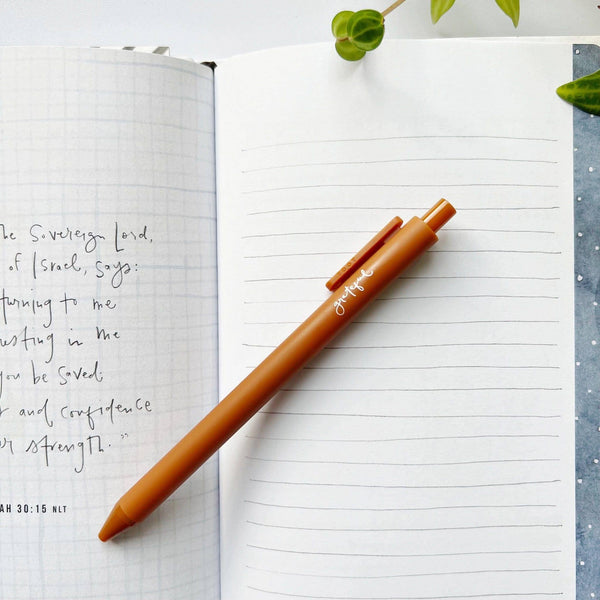 he Sovereign Lord,
of Israel, says:
turning to me
esting in me
you be saved.
and confidence
or strength."
AH 30:15 NLT
grateful